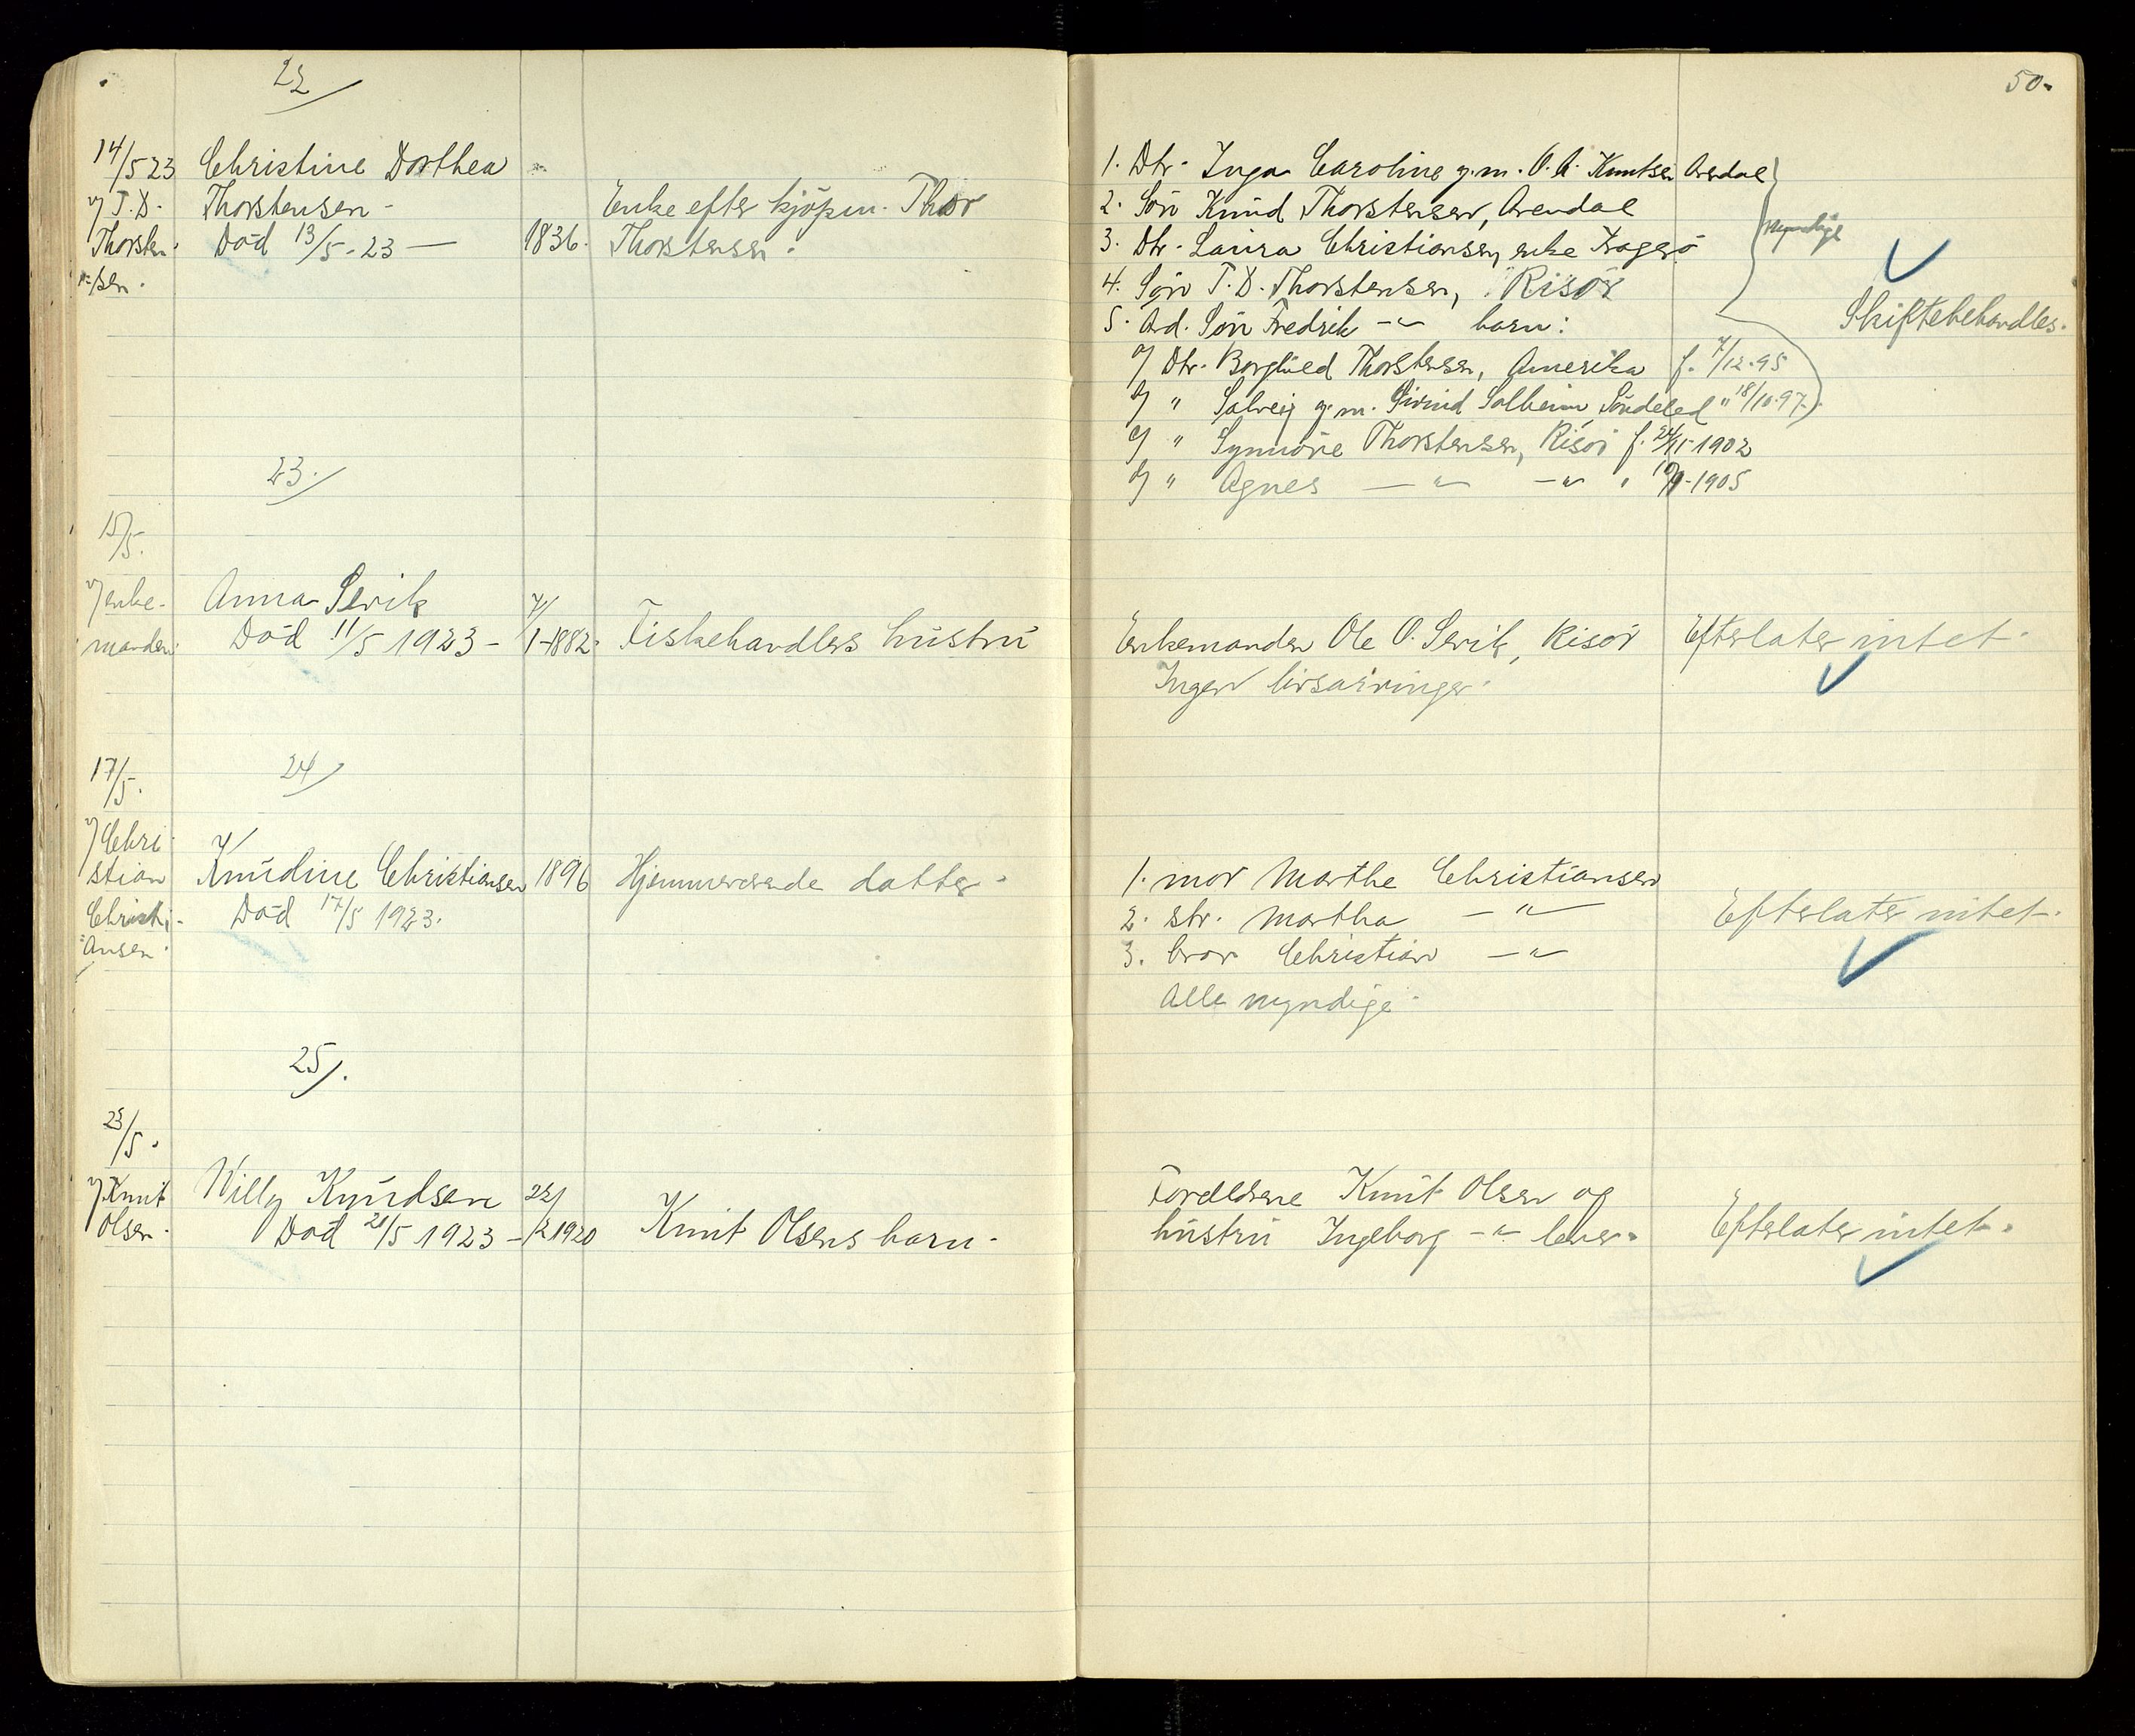 50.
22/
14/5 23
v/ T. D.
Thorsten-
sen.
Christine Dorthea
Thorstensen -
Död 13/5 - 23 —
1836.
Enke efter kjöpm. Thor
Thorstensen.
1. Dtr. Inga Caroline g. m. O. A. Knutsen Arendal
2. Sön Knud Thorstensen, Arendal
3. Dtr. Laura Christiansen, enke Kragerö
4. Sön T. D. Thorstensen, Risör
5. Ad. Sön Fredrik -"- barn:
a/ Dtr. Borghild Thorstensen, Amerika f. 7/12-95
b/ " Solveig g. m. Eivind Solheim, Söndeled " 18/10-97
c/ " Synnöve Thorstensen, Risör f. 24/11-1902
d/ " Agnes -"- -"- " 10/9-1905
myndige
Skiftebehandles.
23./
15/5.
v/ enke-
manden
Anna Sevik
Död 11/5 1923 -
1-1882.
Fiskehandlers hustru
Enkemanden Ole O. Sevik, Risör
Ingen livsarvinger.
Efterlater intet.
24/
17/5.
v/ Chri-
stian
Christi-
ansen.
Knudine Christiansen
Död 17/5 1923.
1896
Hjemmeværende datter.
1. mor Marthe Christiansen
2. str. Martha -"-
3. bror Christian -"-
Alle myndige.
Efterlater intet.
25/.
23/5.
v/ Knut
Olsen.
Willy Knudsen
Död 21/5 1923 -
22/2 1920
Knut Olsens barn.
Forældrene Knut Olsen og
hustru Ingeborg -"- lever.
Efterlater intet.